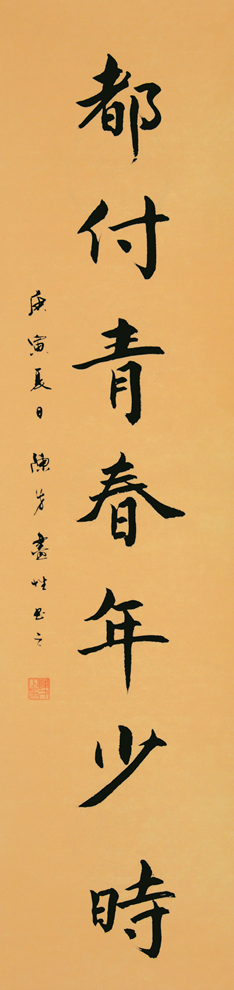 都付青春年少時
庚寅夏日陳芳畫雄書之